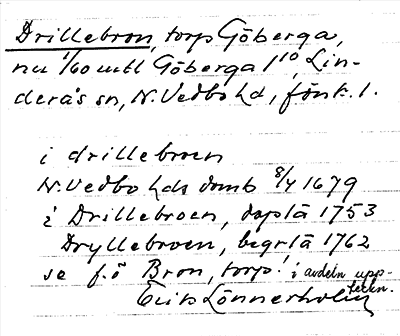 Drillebron, torp Göberga,
nu 1/60 mtl Göberga 1¹⁰, Lin-
derås sn, N. Vedbo hd, Jönk. l.
i drillebroen
N. Vedbo hds domb 8/4 1679
i Drillebroen, doplä 1753
Dryllebroen, begrlä 1762
se f.ö Bron, torp. i avdeln upp-
teckn.
Erik Lönnerholm